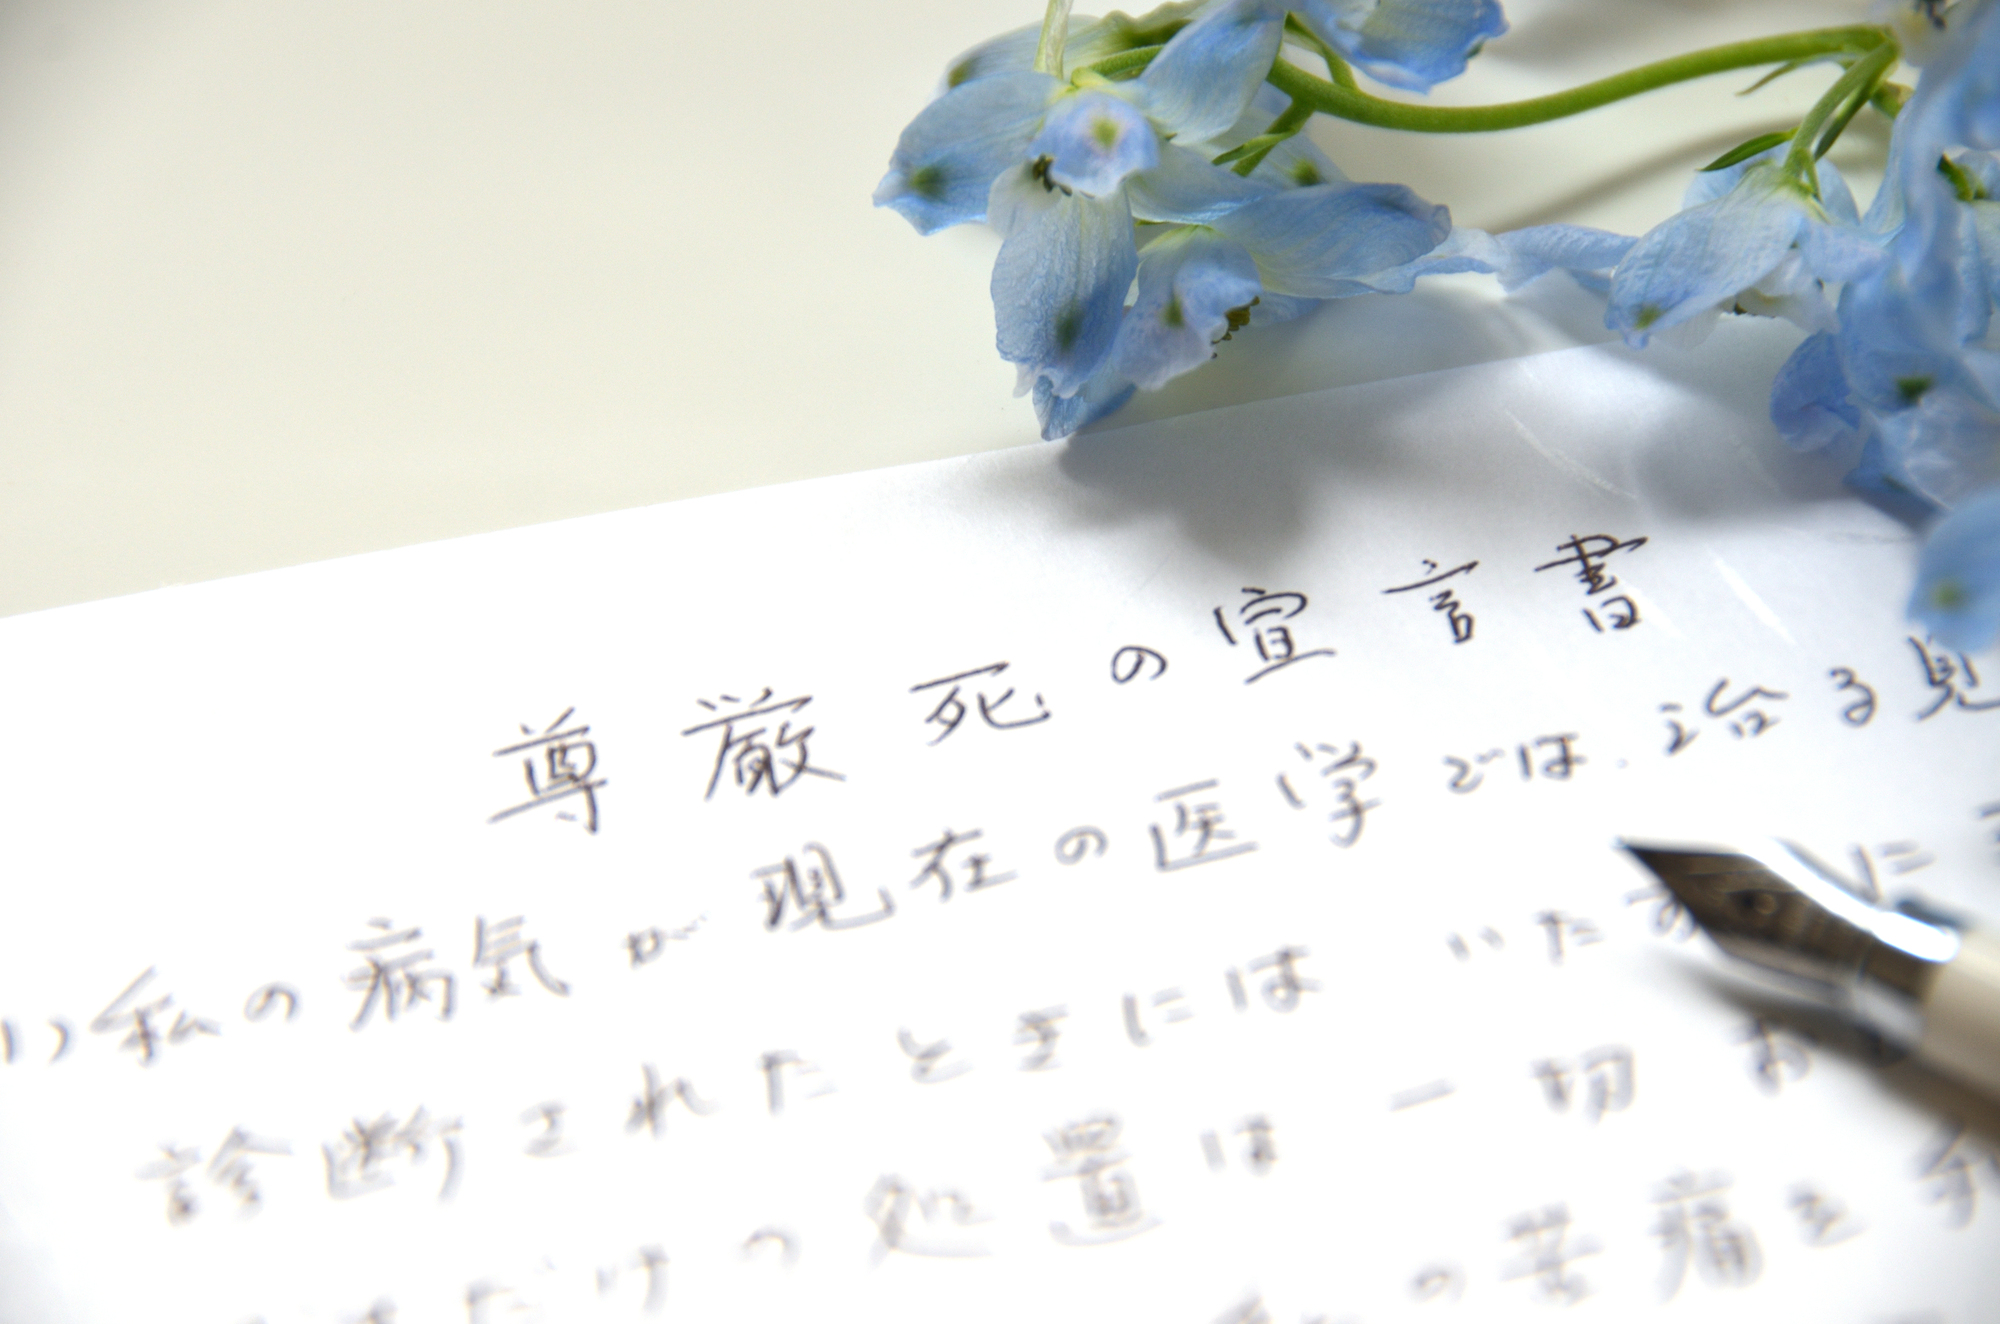 尊厳死の宣言書
1)私の病気が現在の医学では、治る見
診断されたときには いたず に
だけの処置は一切お
の苦痛を